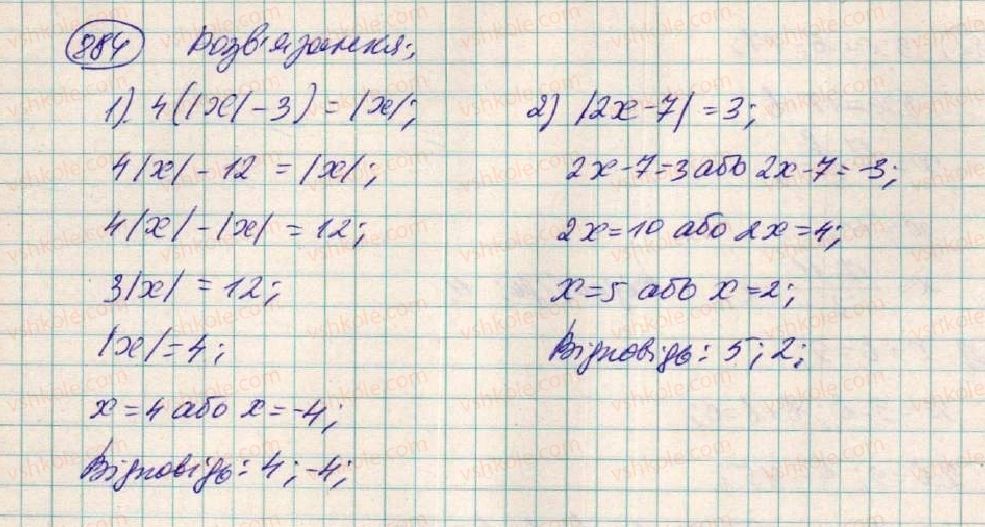 884 Розв'язання;
1). 4(|x| - 3) = |x|;
4|x| - 12 = |x|;
4|x| - |x| = 12;
3|x| = 12;
|x| = 4;
x = 4 або x = -4;
Відповідь: 4; -4;
2) |2x - 7| = 3;
2x - 7 = 3 або 2x - 7 = -3;
2x = 10 або 2x = 4;
x = 5 або x = 2;
Відповідь: 5; 2;
vshkole.com